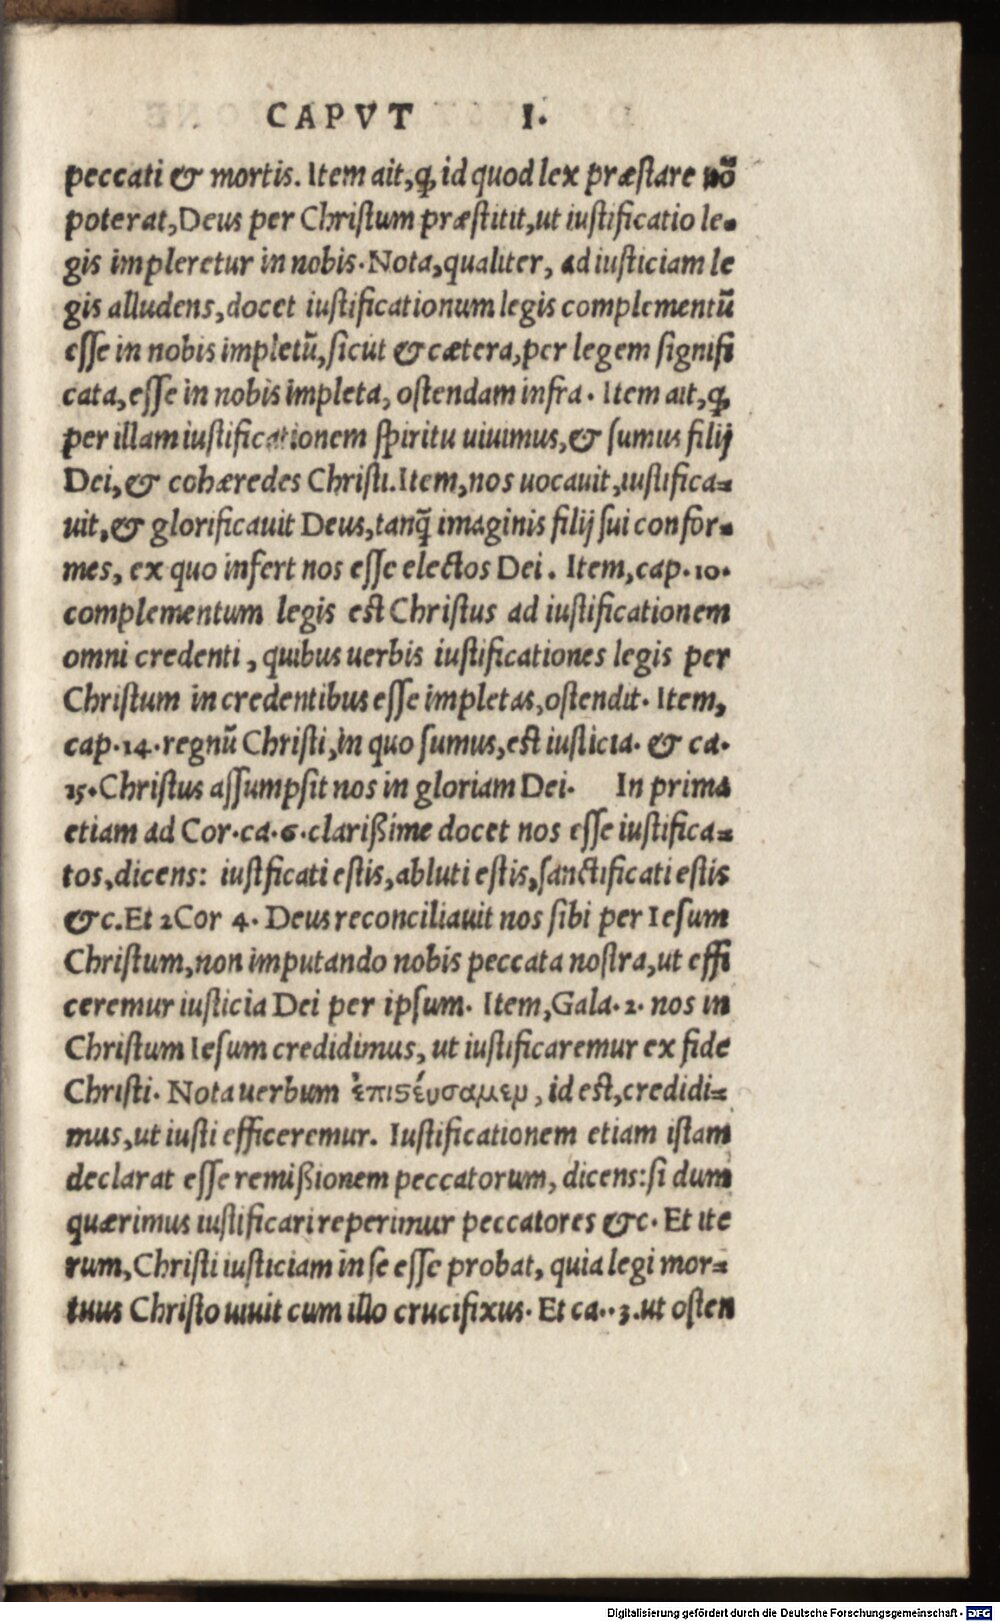 CAPVT I.
peccati & mortis. Item ait, ꝙ id quod lex præstare nõ
poterat, Deus per Christum præstitit, ut iustificatio le-
gis impleretur in nobis. Nota, qualiter, ad iusticiam le
gis alludens, docet iustificationum legis complementũ
esse in nobis impletũ, sicut & cætera, per legem signifi
cata, esse in nobis impleta, ostendam infra. Item ait, ꝙ
per illam iustificationem spiritu uiuimus, & sumus filij
Dei, & cohæredes Christi. Item, nos uocauit, iustifica-
uit, & glorificauit Deus, tanq̃ imaginis filij sui confor-
mes, ex quo infert nos esse electos Dei. Item, cap. 10.
complementum legis est Christus ad iustificationem
omni credenti, quibus uerbis iustificationes legis per
Christum in credentibus esse impletas, ostendit. Item,
cap. 14. regnũ Christi, in quo sumus, est iusticia. & ca.
15. Christus assumpsit nos in gloriam Dei. In prima
etiam ad Cor. ca. 6. clarißime docet nos esse iustifica-
tos, dicens: iustficati estis, abluti estis, sanctificati estis
&c. Et 2 Cor 4. Deus reconciliauit nos sibi per Iesum
Christum, non imputando nobis peccata nostra, ut effi
ceremur iusticia Dei per ipsum. Item, Gala. 2. nos in
Christum Iesum credidimus, ut iustificaremur ex fide
Christi. Nota uerbum ἐπιϛέυσαμεν, id est, credidi-
mus, ut iusti efficeremur. Iustificationem etiam istam
declarat esse remißionem peccatorum, dicens: si dum
quærimus iustificari reperimur peccatores &c. Et ite
rum, Christi iusticiam in se esse probat, quia legi mor-
tuus Christo uiuit cum illo crucifixus. Et ca.. 3. ut osten
Digitalisierung gefördert durch die Deutsche Forschungsgemeinschaft - DFG